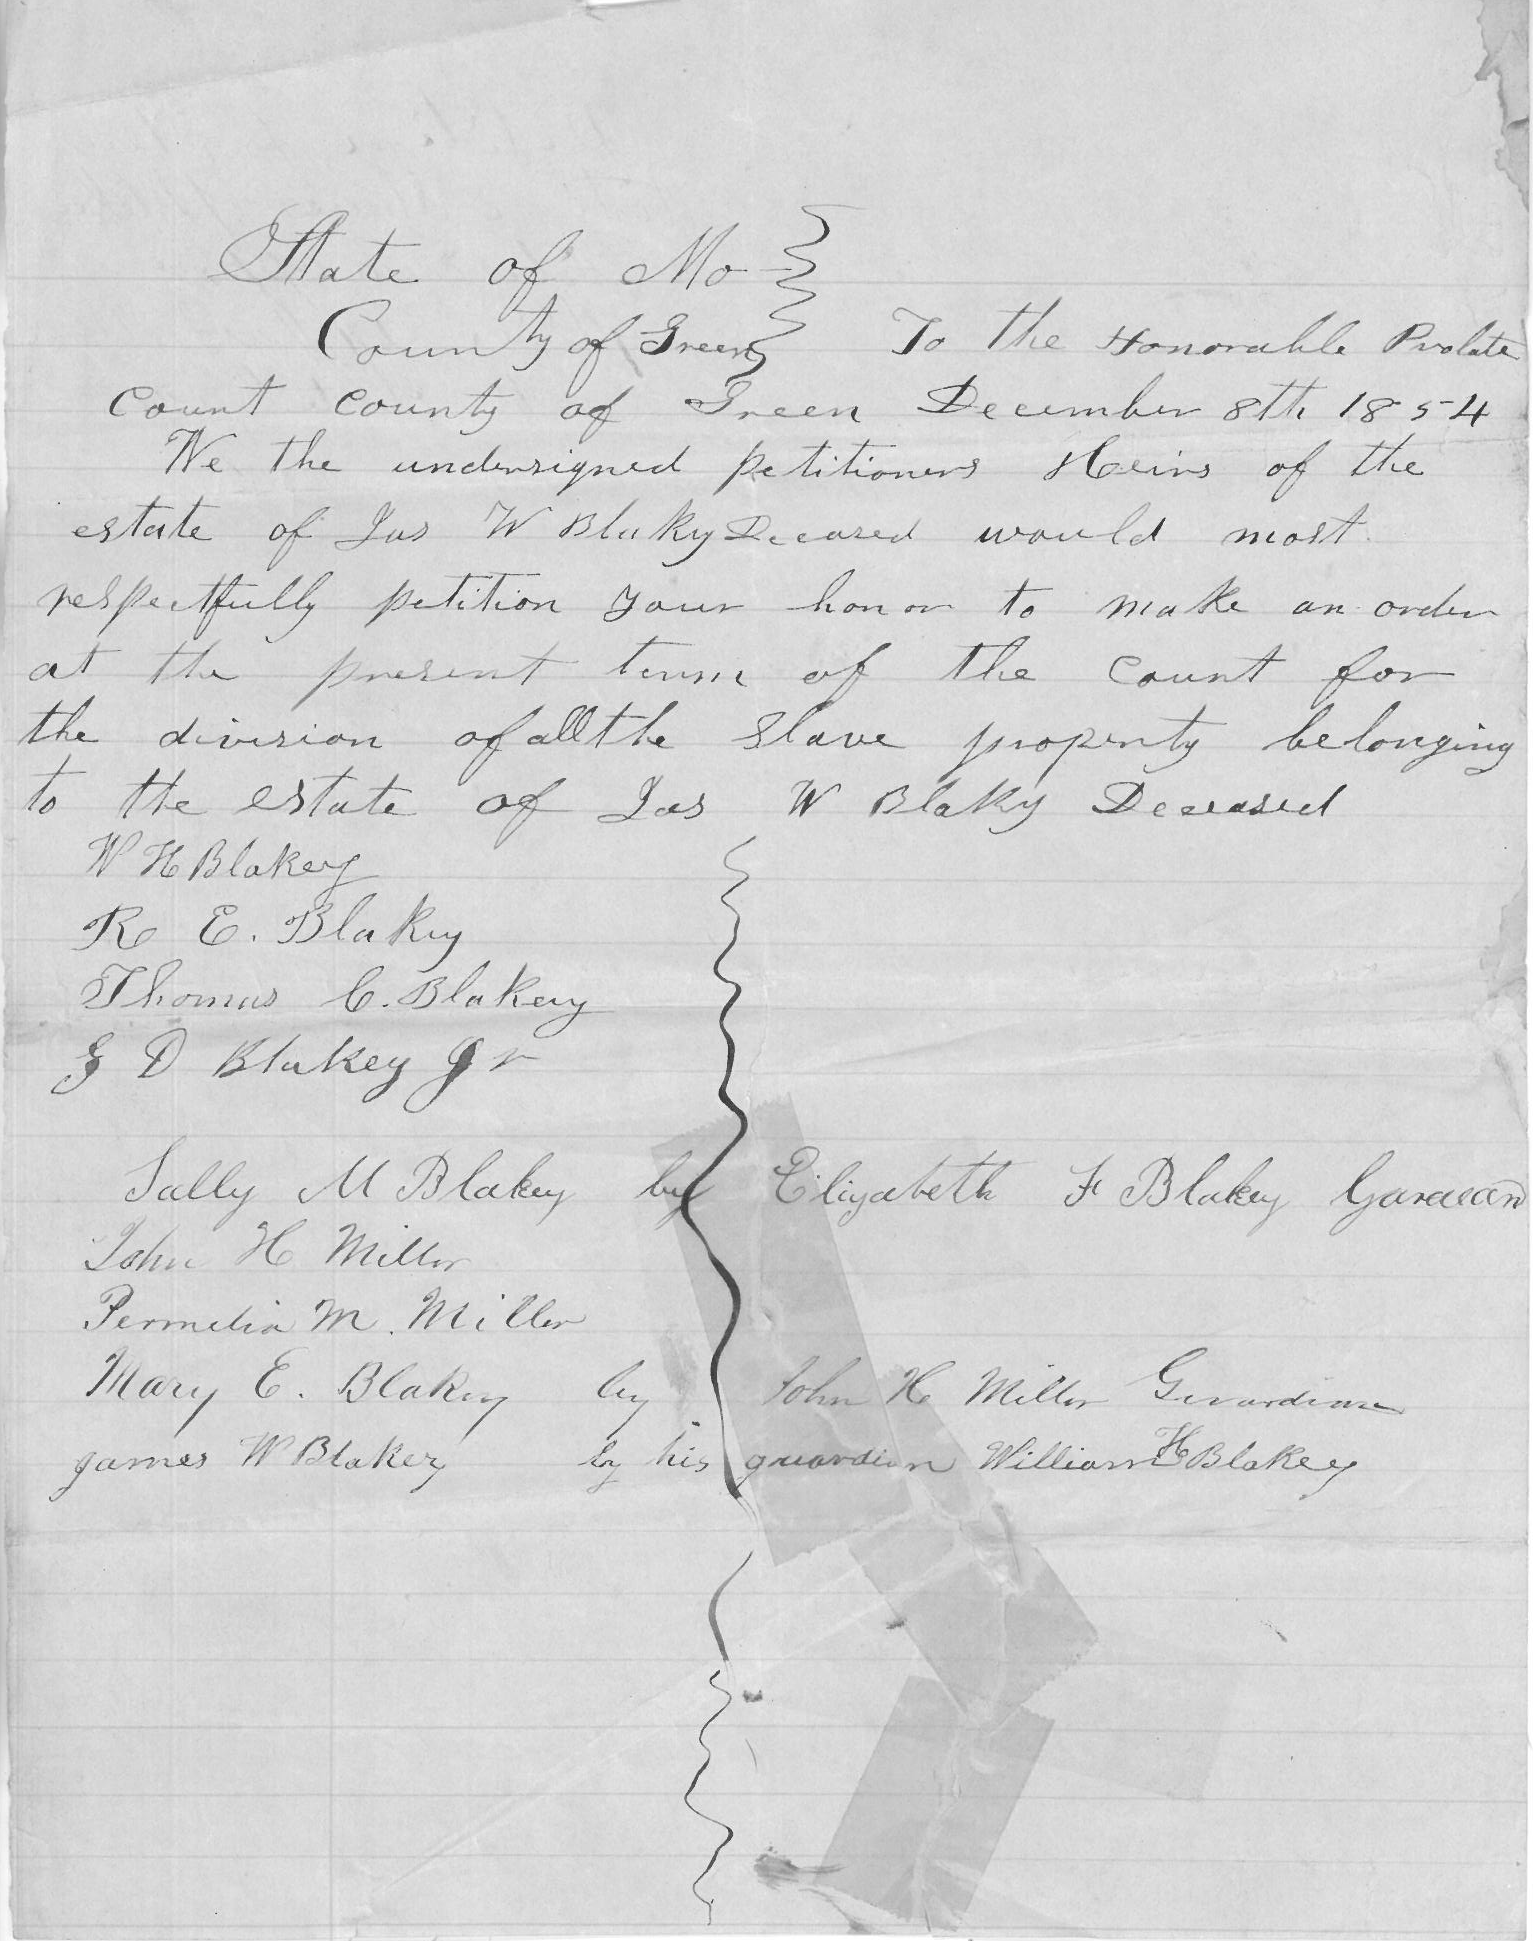 State of Mo
County of Green To the Honorable Probate
Court County of Green December 8th 1854
We the undersigned petitioners Heirs of the
estate of Jas W Blaky Deceased would most
respectfully petition your honor to make an order
at the present term of the Court for
the division of all the Slave property belonging
to the estate of Jas W Blaky Deceased
W H Blakey
R E. Blakey
Thomas C. Blakey
G D Blakey Jr
Sally M Blakey by Elizabeth F Blakey
John H Miller
Permelia M. Miller
Mary E. Blakey by John H Miller Guardian
James W Blakey by his guardian William H Blakey